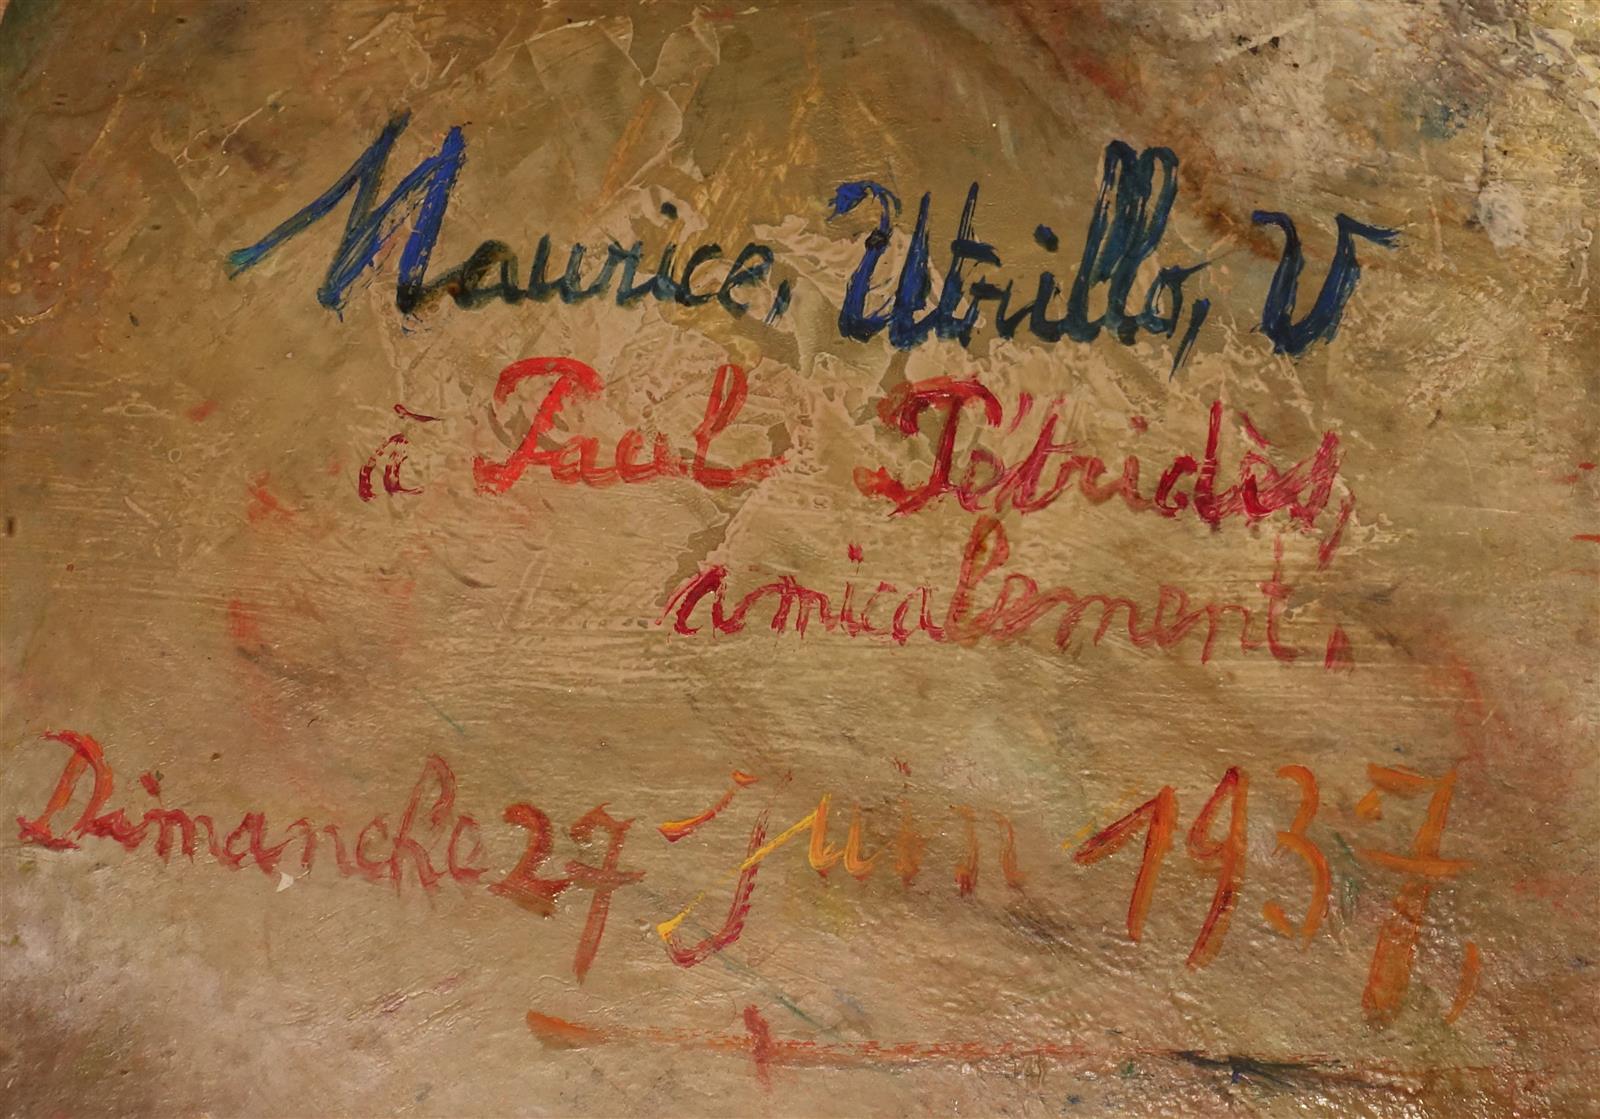 Maurice, Utrillo, V
à Paul Pétridès,
amicalement.
Dimanche 27 juin 1937,